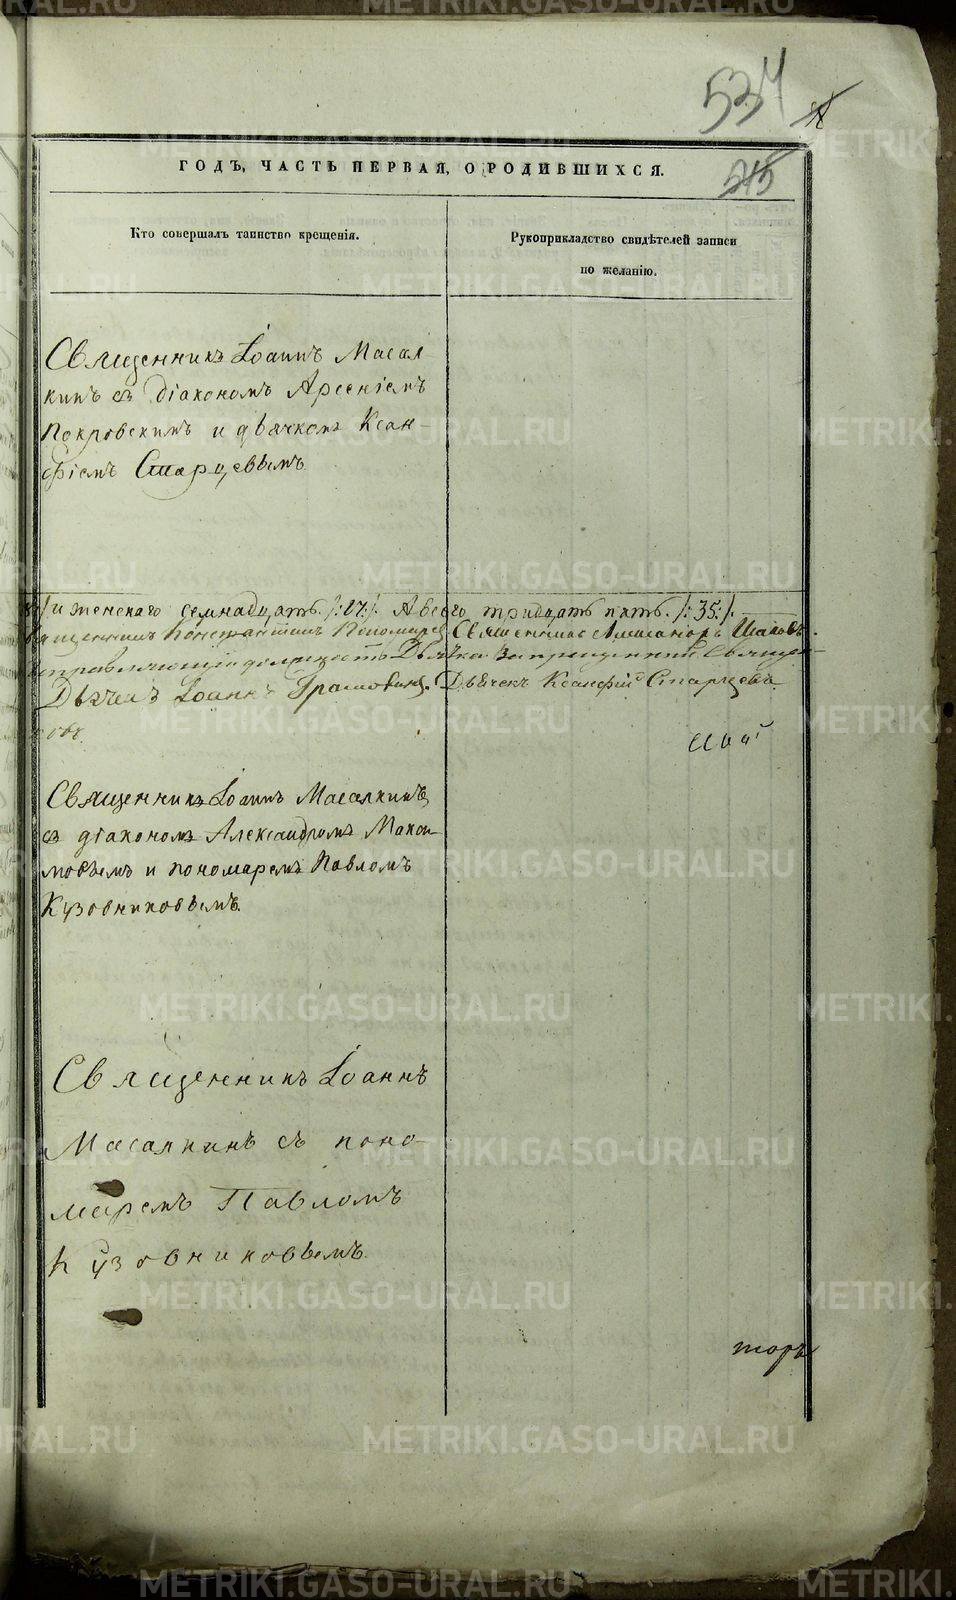 534
215
ГОДЪ, ЧАСТЬ ПЕРВАЯ, О РОДИВШИХСЯ.
Кто совершалъ таинство крещенія.
Рукоприкладство свидѣтелей записи
по желанію.
Священникъ Іоаннъ Масал
кинъ съ діакономъ Арсеніемъ
Покровскимъ и дьячкомъ Ксан-
фіемъ Старцевымъ
и женскаго семнадцать /:17:/. А всего тридцать пять. /:35:/.
Константинъ Пономарев Священникъ Александръ
исправляющій должность Дьячка Запрещенный Священ-
Дьячекъ Іоаннъ Дьячекъ Ксанфій Старцевъ
Маій
Священникъ Іоаннъ Масалкинъ
съ діакономъ Александромъ Макси
мовымъ и пономаремъ Павломъ
Кузовниковымъ.
Священникъ Іоаннъ
Масалкинъ съ поно-
маремъ Павломъ
Кузовниковымъ
торъ
METRIKI.GASO-URAL.RU